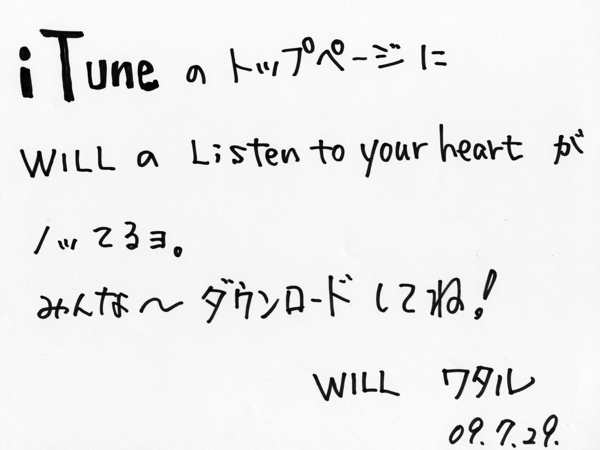 iTune の トップページに
WILL の Listen to your heart が
ノッてるヨ。
みんな〜 ダウンロード してね!
WILL ワタル
09.7.29.